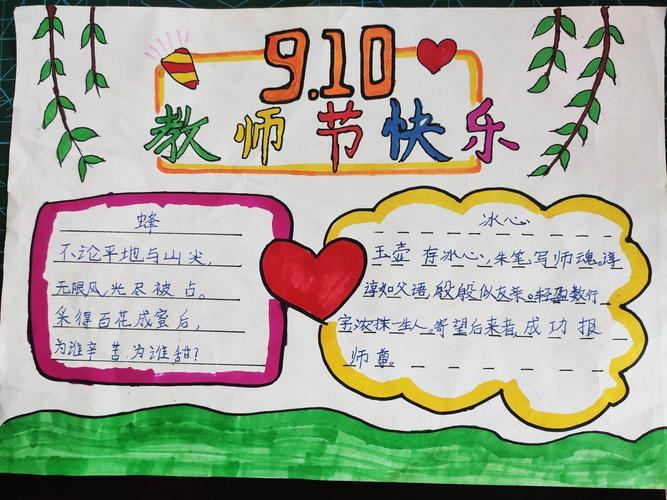 9.10
教师节快乐
蜂
不论平地与山尖,
无限风光尽被占。
采得百花成蜜后,
为谁辛苦为谁甜?
冰心
玉壶存冰心,朱笔写师魂。谆
谆如父语,殷殷似友亲。轻盈数行
字,浓抹一生人。寄望后来者,成功报
师尊。